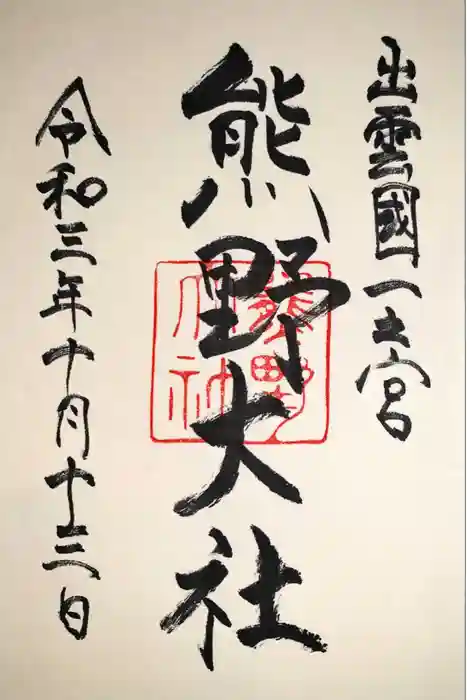 出雲國一之宮
熊野大社
令和三年十月十三日
熊野
大社